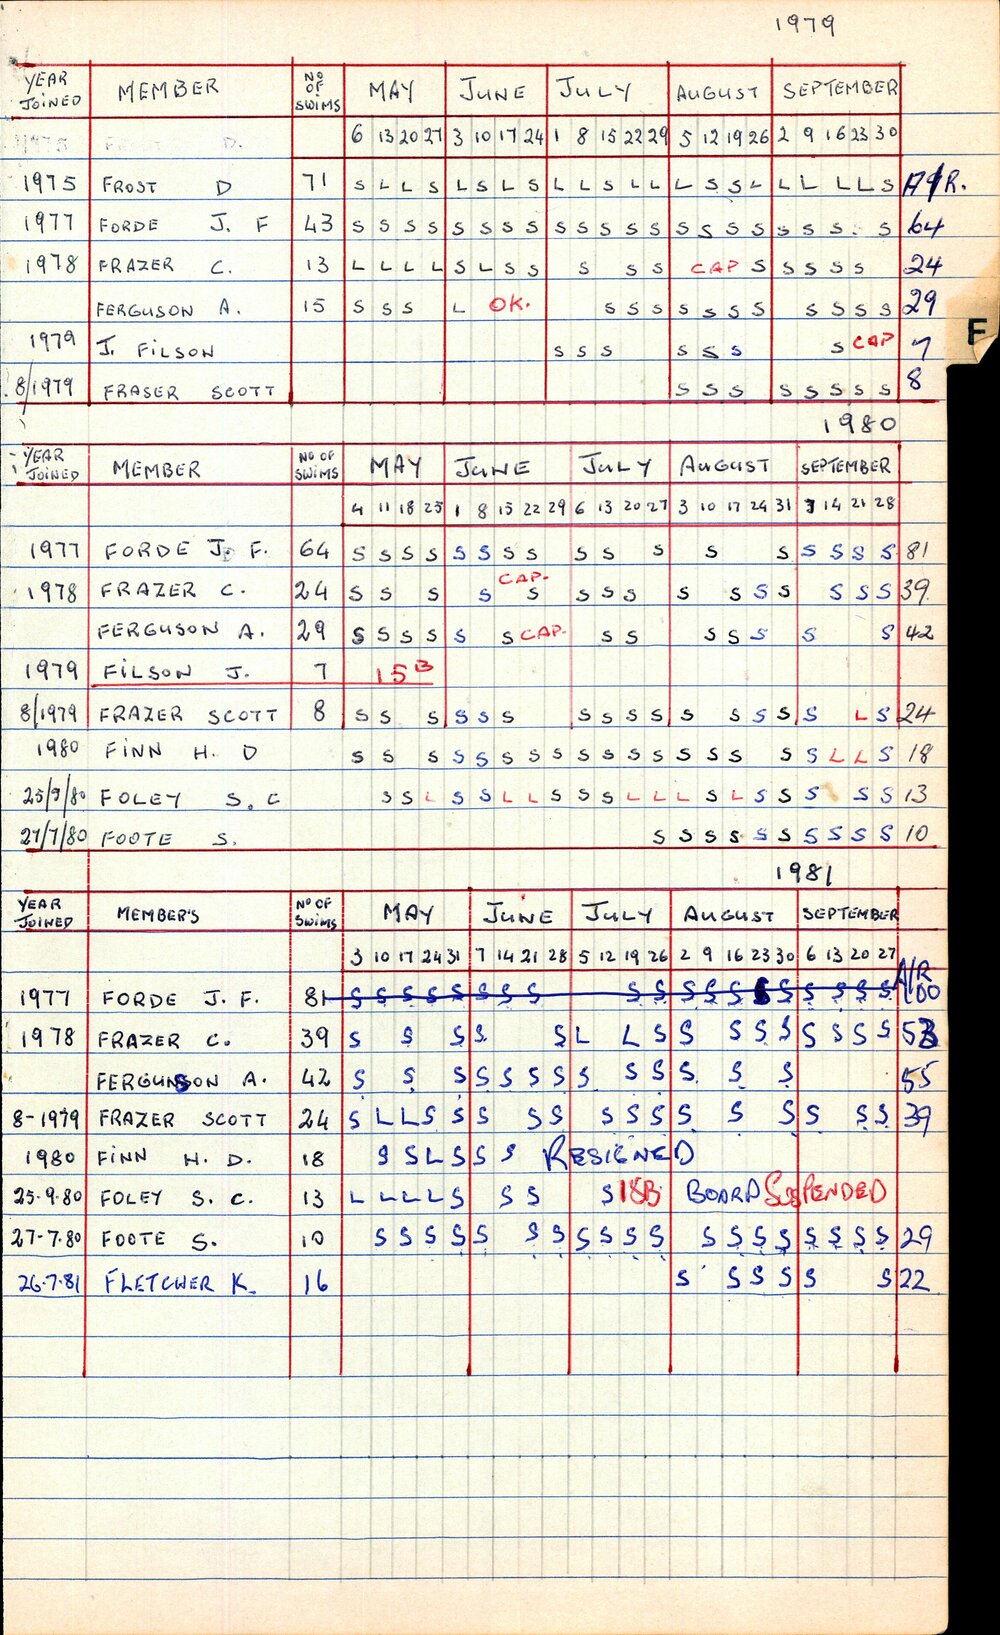 1979
YEAR JOINED MEMBER NO OF SWIMS MAY JUNE JULY AUGUST SEPTEMBER
6 13 20 27 3 10 17 24 1 8 15 22 29 5 12 19 26 2 9 16 23 30
1975 FROST D 71 S L L S L S L S L L S L L L S S L L L L L S A/R.
1977 FORDE J. F 43 S S S S S S S S S S S S S S S S S S S S S 64
1978 FRAZER C. 13 L L L L S L S S S S S CAP S S S S S 24
FERGUSON A. 15 S S S L OK. S S S S S S S S S S S 29
1979 J. FILSON S S S S S S S CAP 7
8/1979 FRASER SCOTT S S S S S S S S 8
F
1980
YEAR JOINED MEMBER NO OF SWIMS MAY JUNE JULY AUGUST SEPTEMBER
4 11 18 25 1 8 15 22 29 6 13 20 27 3 10 17 24 31 7 14 21 28
1977 FORDE J. F. 64 S S S S S S S S S S S S S S S S S 81
1978 FRAZER C. 24 S S S S CAP. S S S S S S S S S S S 39
FERGUSON A. 29 S S S S S S CAP. S S S S S S S 42
1979 FILSON J. 7 15B
8/1979 FRAZER SCOTT 8 S S S S S S S S S S S S S S S S L S 24
1980 FINN H. D S S S S S S S S S S S S S S S S S L L S 18
25/9/80 FOLEY S. C S S L S S L L S S S L L L S L S S S S S 13
27/7/80 FOOTE S. S S S S S S S S S S 10
1981
YEAR JOINED MEMBER'S NO OF SWIMS MAY JUNE JULY AUGUST SEPTEMBER
3 10 17 24 31 7 14 21 28 5 12 19 26 2 9 16 23 30 6 13 20 27
1977 FORDE J. F. 81 S S S S S S S S S S S S S S S S S S S A/R 100
1978 FRAZER C. 39 S S S S S L L S S S S S S S S S 53
FERGUSON A. 42 S S S S S S S S S S S S S 55
8-1979 FRAZER SCOTT 24 S L L S S S S S S S S S S S S S S 39
1980 FINN H. D. 18 S S L S S S RESIGNED
25.9.80 FOLEY S. C. 13 L L L L S S S S 18B BOARD SUSPENDED
27-7.80 FOOTE S. 10 S S S S S S S S S S S S S S S S S S S 29
26.7.81 FLETCHER K. 16 S S S S S S 22